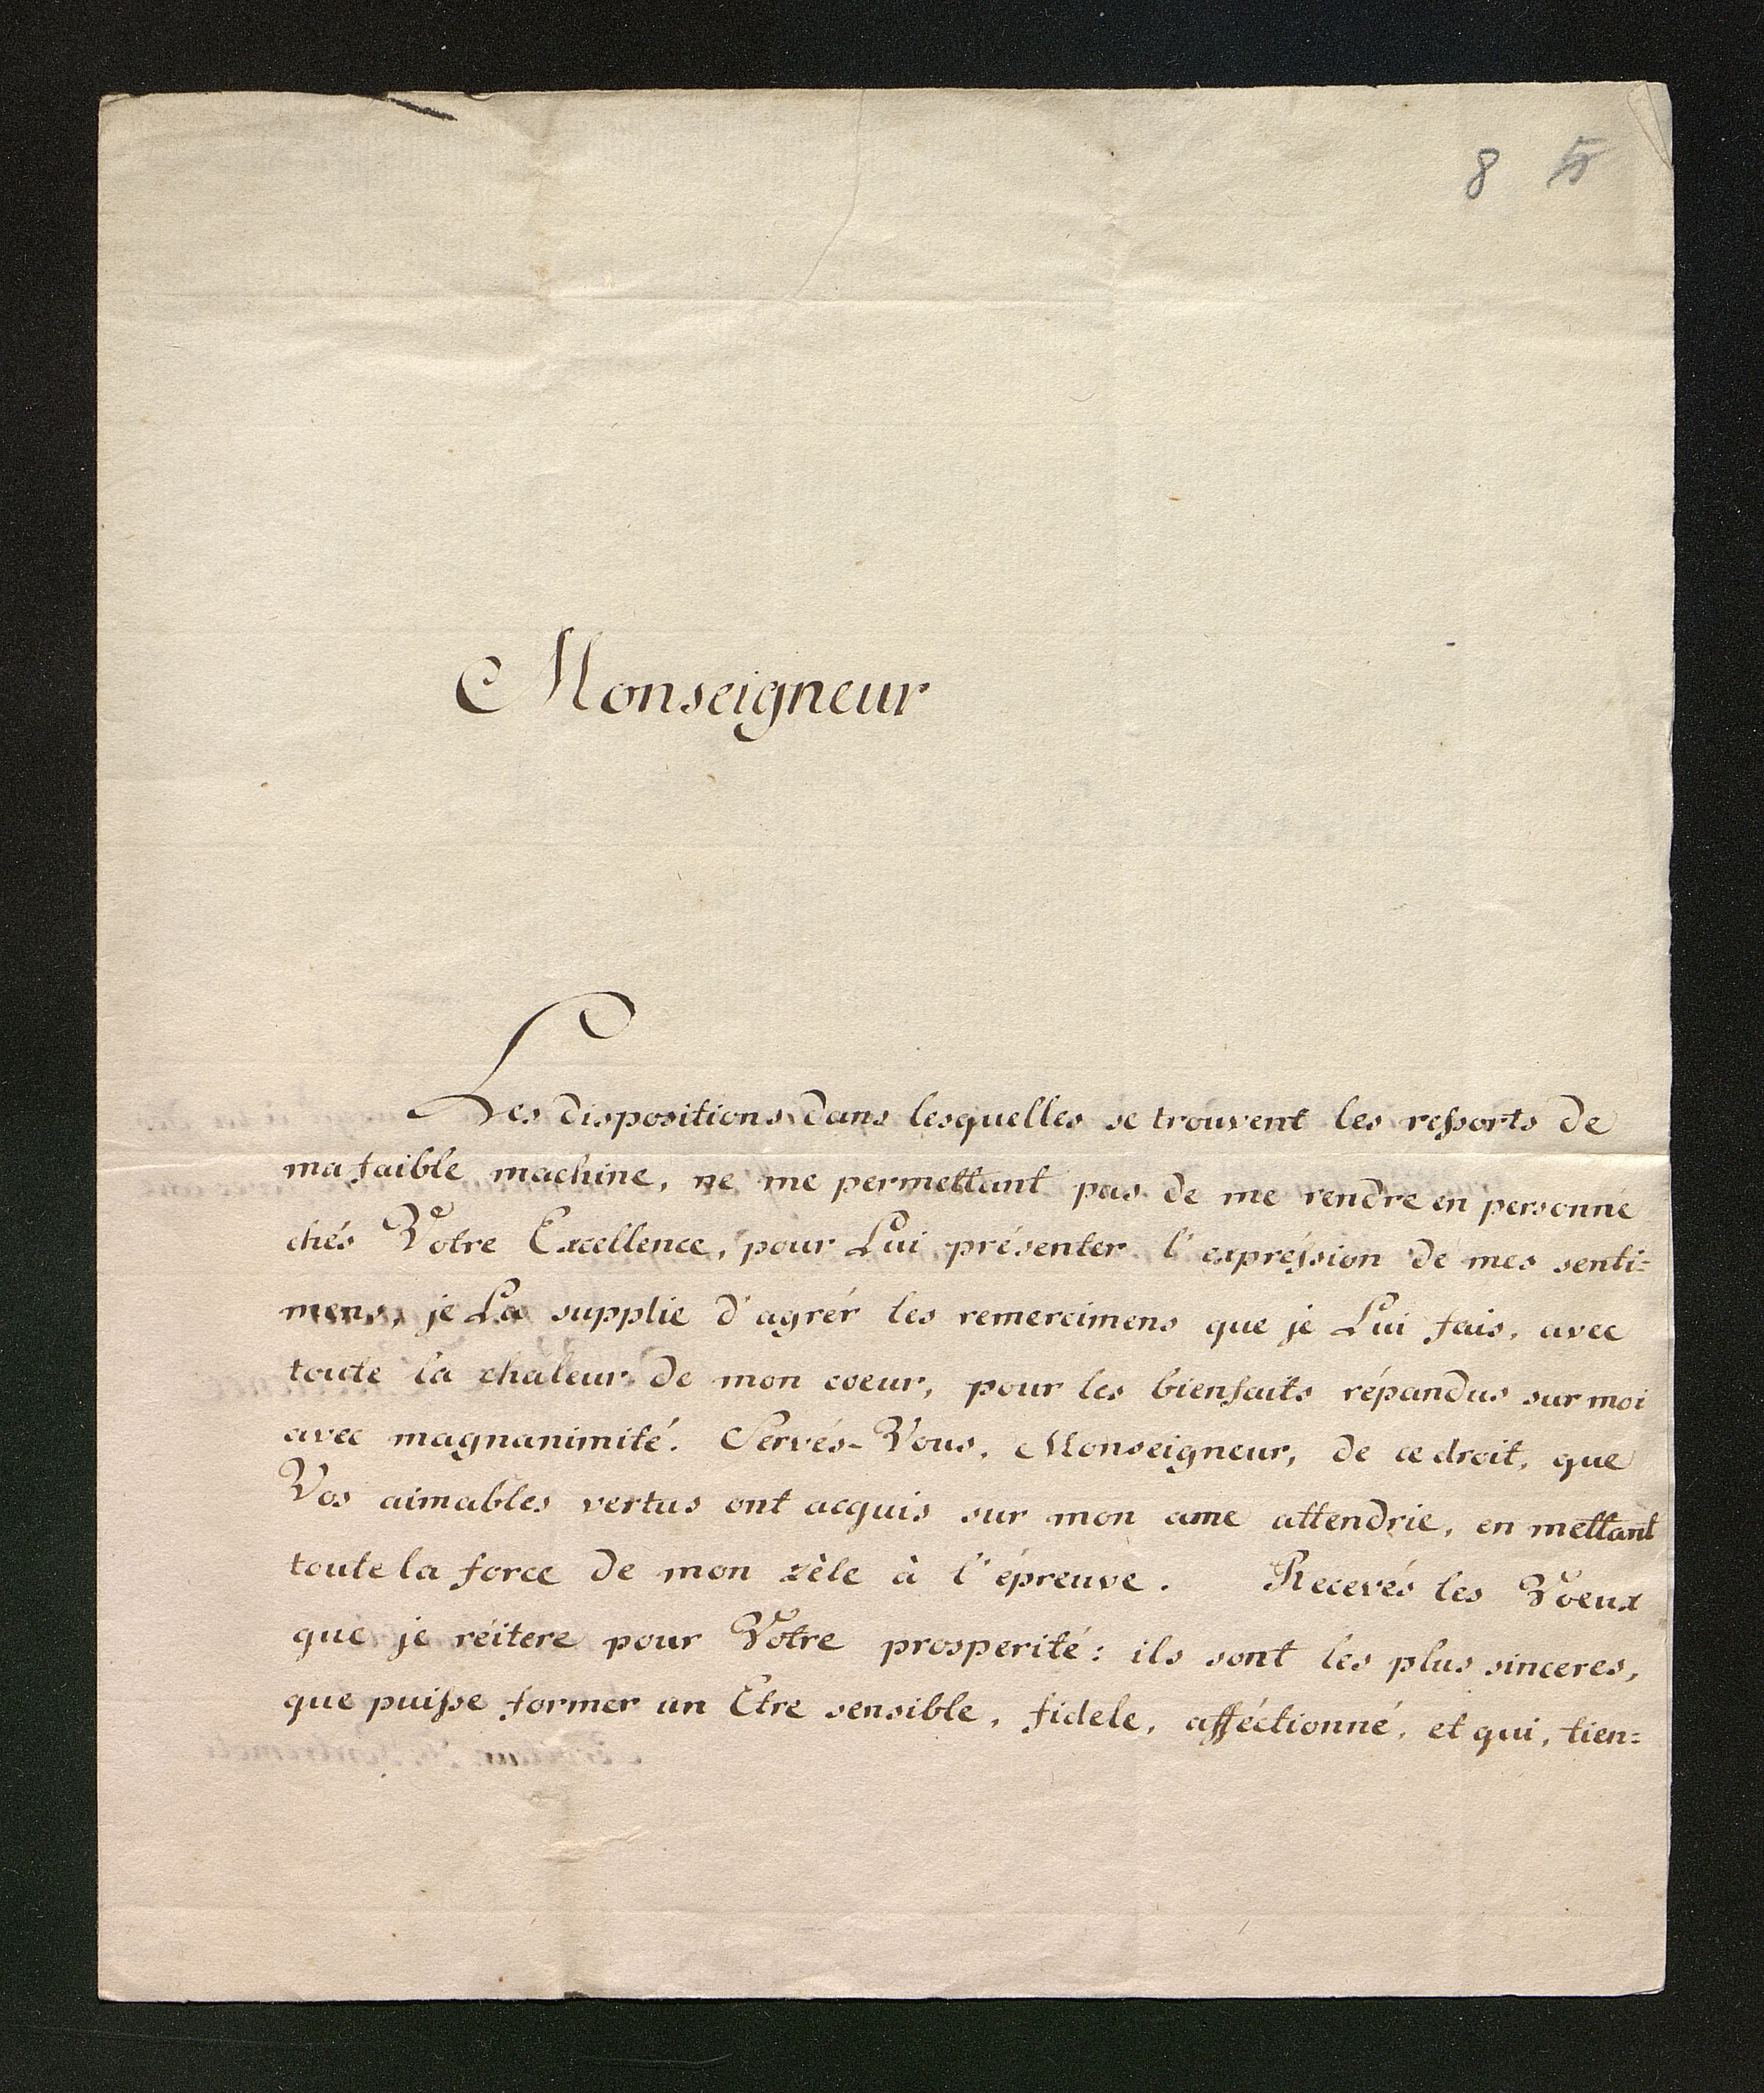 8 5
Monseigneur
Les dispositions dans lesquelles se trouvent les ressorts de
ma faible machine, ne me permettant pas de me rendre en personne
chés Votre Excellence, pour Lui présenter l'expréssion de mes senti=
mens, je La supplie d'agrér les remercimens que je Lui fais, avec
toute la chaleur de mon coeur, pour les bienfaits répandus sur moi
avec magnanimité. Servés-Vous, Monseigneur, de ce droit, que
Vos aimables vertus ont acquis sur mon ame attendrie, en mettant
toute la force de mon zèle à l'épreuve. Recevés les Voeux
que je réitere pour Votre prosperité: ils sont les plus sinceres,
que puisse former un Etre sensible, fidele, afféctionné, et qui, tien=